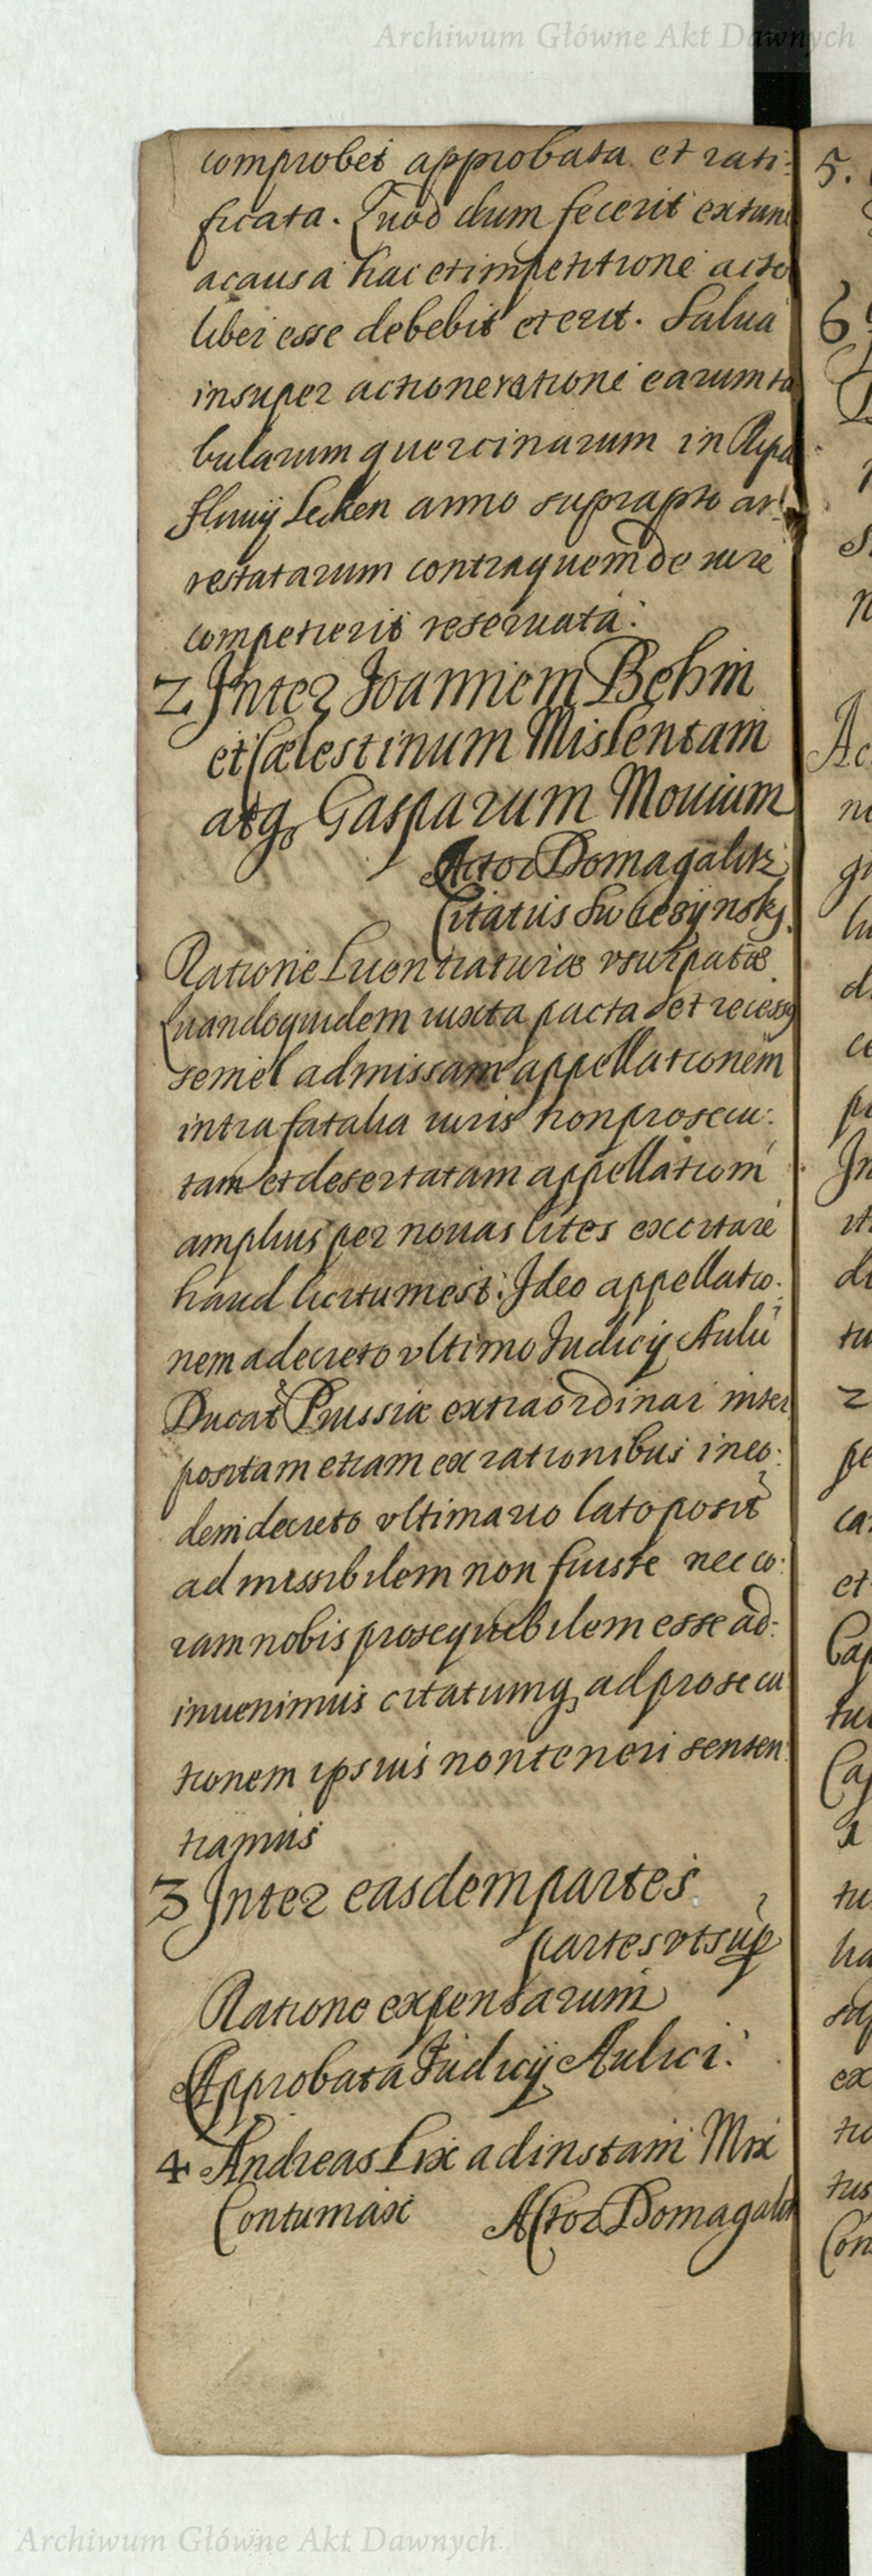 Archiwum Główne Akt Dawnych
comprobet approbata et rati:
ficata. Quod dum fecerit extunc
a causa hac et impetitione acto
liber esse debebit et erit. Salua
insuper actione ratione earum ta
bularum quercinarum in Ripa
fluuij Lecken anno suprapto ar:
restatarum contra quem de iure
competierit reseruata.
2 Inter Joannem Behm
et Cælestinum Mislentam
atq Gasparum Mouium
Actor Domagalitz
Citatus Lubczynsky.
Ratione Licentiaturæ vsurpatæ
Quandoquidem iuxta pacta et recess
semel admissam appellationem
intra fatalia iuris non prosecu:
tam et desertatam appellationi
amplius per nouas lites excitare
haud licitum est. Ideo appellatio:
nem a decreto vltimo Iudicij Aulici
Ducat Prussiæ extraordinar inter
positam etiam ex rationibus in eo:
dem decreto vltimario lato posit
admissibilem non fuisse nec co:
ram nobis prosequibilem esse ad:
inuenimus citatumq ad prosecu
tionem ipsius non teneri senten:
tiamus
3 Inter easdem partes
partes vt sup
Ratione expensarum
Approbata Iudicij Aulici.
4 Andreas Lix ad instam Mri
Contumax Actor Domagalit
5.
6
Archiwum Główne Akt Dawnych